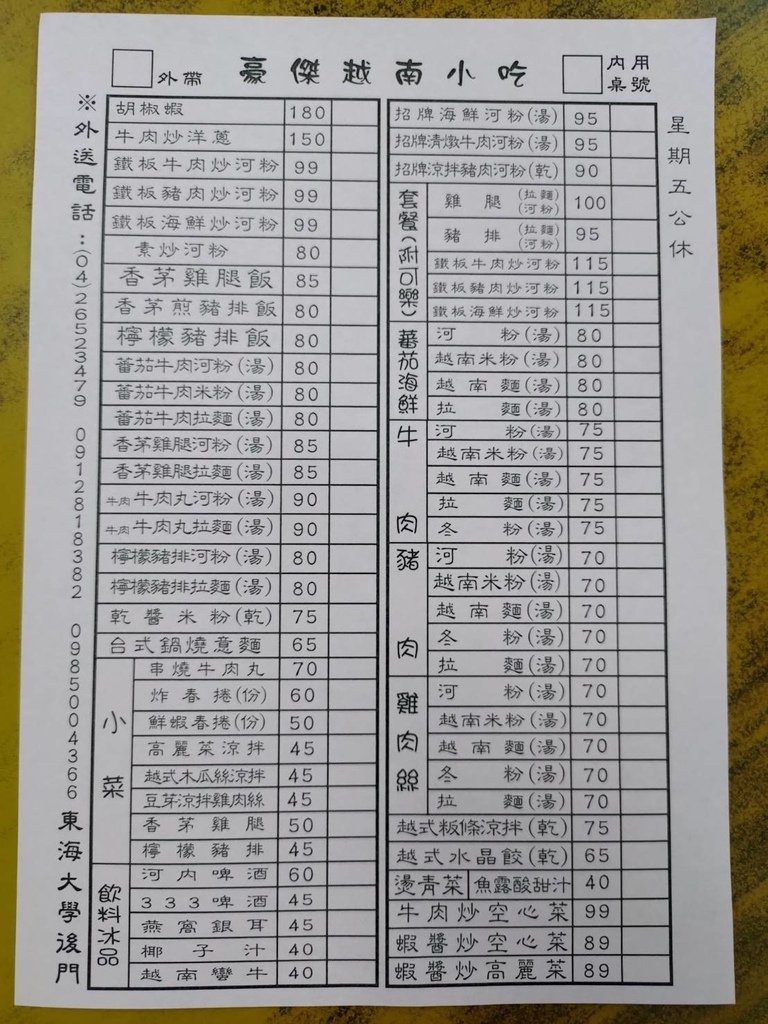 外帶
豪傑越南小吃
內用
桌號
※外送電話:(04)26523479 0912818382 0985004366 東海大學後門
星期五公休
胡椒蝦 180
牛肉炒洋蔥 150
鐵板牛肉炒河粉 99
鐵板豬肉炒河粉 99
鐵板海鮮炒河粉 99
素炒河粉 80
香茅雞腿飯 85
香茅煎豬排飯 80
檸檬豬排飯 80
蕃茄牛肉河粉(湯) 80
蕃茄牛肉米粉(湯) 80
蕃茄牛肉拉麵(湯) 80
香茅雞腿河粉(湯) 85
香茅雞腿拉麵(湯) 85
牛肉牛肉丸河粉(湯) 90
牛肉牛肉丸拉麵(湯) 90
檸檬豬排河粉(湯) 80
檸檬豬排拉麵(湯) 80
乾醬米粉(乾) 75
台式鍋燒意麵 65
小菜
串燒牛肉丸 70
炸春捲(份) 60
鮮蝦春捲(份) 50
高麗菜涼拌 45
越式木瓜絲涼拌 45
豆芽涼拌雞肉絲 45
香茅雞腿 50
檸檬豬排 45
飲料冰品
河內啤酒 60
333啤酒 45
燕窩銀耳 45
椰子汁 40
越南彎牛 40
招牌海鮮河粉(湯) 95
招牌清燉牛肉河粉(湯) 95
招牌涼拌豬肉河粉(乾) 90
套餐(附可樂)
雞腿(拉麵)(河粉) 100
豬排(拉麵)(河粉) 95
鐵板牛肉炒河粉 115
鐵板豬肉炒河粉 115
鐵板海鮮炒河粉 115
蕃茄海鮮
河粉(湯) 80
越南米粉(湯) 80
越南麵(湯) 80
拉麵(湯) 80
牛肉
河粉(湯) 75
越南米粉(湯) 75
越南麵(湯) 75
拉麵(湯) 75
冬粉(湯) 75
豬肉
河粉(湯) 70
越南米粉(湯) 70
越南麵(湯) 70
冬粉(湯) 70
拉麵(湯) 70
雞肉絲
河粉(湯) 70
越南米粉(湯) 70
越南麵(湯) 70
冬粉(湯) 70
拉麵(湯) 70
越式粄條涼拌(乾) 75
越式水晶餃(乾) 65
燙青菜 魚露酸甜汁 40
牛肉炒空心菜 99
蝦醬炒空心菜 89
蝦醬炒高麗菜 89